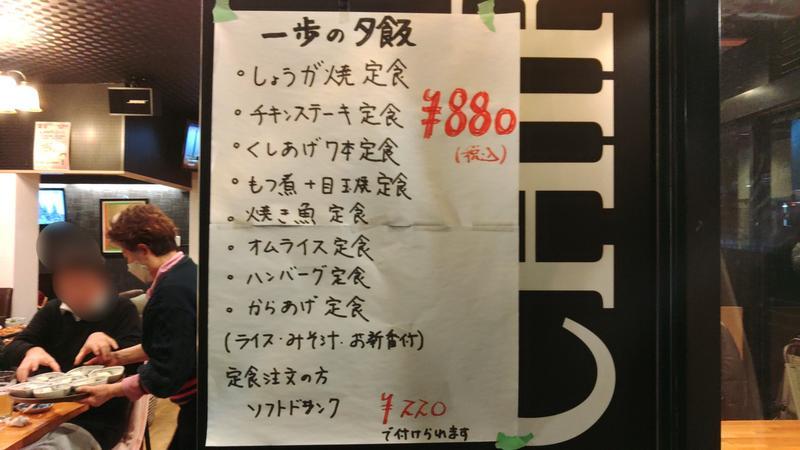 一歩の夕飯
・しょうが焼定食
・チキンステーキ定食
¥880
(税込)
・くしあげ7本定食
・もつ煮+目玉焼定食
・焼き魚定食
・オムライス定食
・ハンバーグ定食
・からあげ定食
(ライス・みそ汁・お新香付)
定食注文の方
ソフトドリンク ¥220
で付けられます